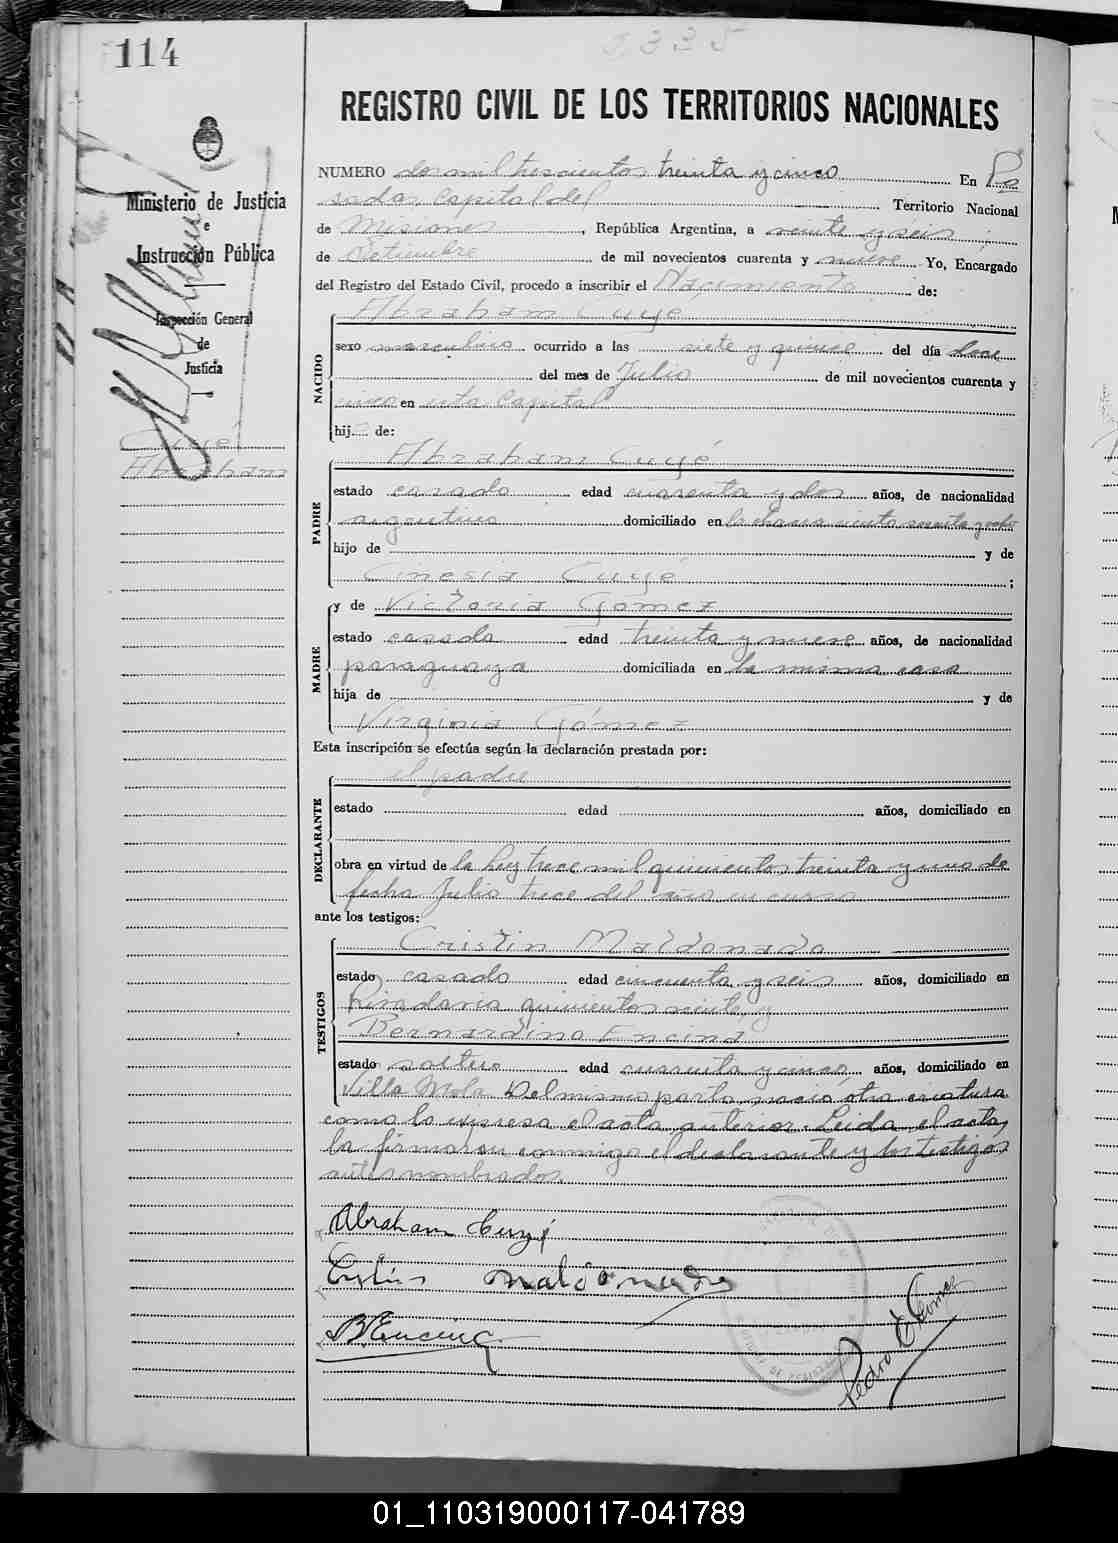 114
2335
REGISTRO CIVIL DE LOS TERRITORIOS NACIONALES
Ministerio de Justicia
e
Instrucción Pública
Inspección General
de
Justicia
Cuyé
Abraham
NUMERO dos mil trescientos treinta y cinco En Po
sadas Capital del Territorio Nacional
de Misiones, República Argentina, a veinte y seis
de Setiembre de mil novecientos cuarenta y nueve Yo, Encargado
del Registro del Estado Civil, procedo a inscribir el Nacimiento de:
NACIDO
Abraham Cuyé
sexo masculino ocurrido a las siete y quince del día doce
del mes de Julio de mil novecientos cuarenta y
cinco en esta Capital
hijo de:
PADRE
Abraham Cuyé
estado casado edad cuarenta y dos años, de nacionalidad
argentino domiciliado en la chacra ciento sesenta y ocho
hijo de y de
Cinesia Cuyé ;
MADRE
y de Victoria Gomez
estado casada edad treinta y nueve años, de nacionalidad
paraguaya domiciliada en la misma casa
hija de y de
Virginia Gómez
Esta inscripción se efectúa según la declaración prestada por:
DECLARANTE
el padre
estado edad años, domiciliado en
obra en virtud de la Ley trece mil quinientos treinta y uno de
fecha Julio trece del año en curso
ante los testigos:
TESTIGOS
Cristin Maldonado
estado casado edad cincuenta y seis años, domiciliado en
Rivadavia quinientos veinte, y
Bernardino Encina
estado soltero edad cuarenta y cinco años, domiciliado en
Villa Mola Del mismo parto nació otra criatura
como lo expresa el acta anterior. Leida el acta,
la firmaron conmigo el declarante y los testigos
antes nombrados.
Abraham Cuyé
Maldonado
B Encina
Pedro Gomez
01_110319000117-041789